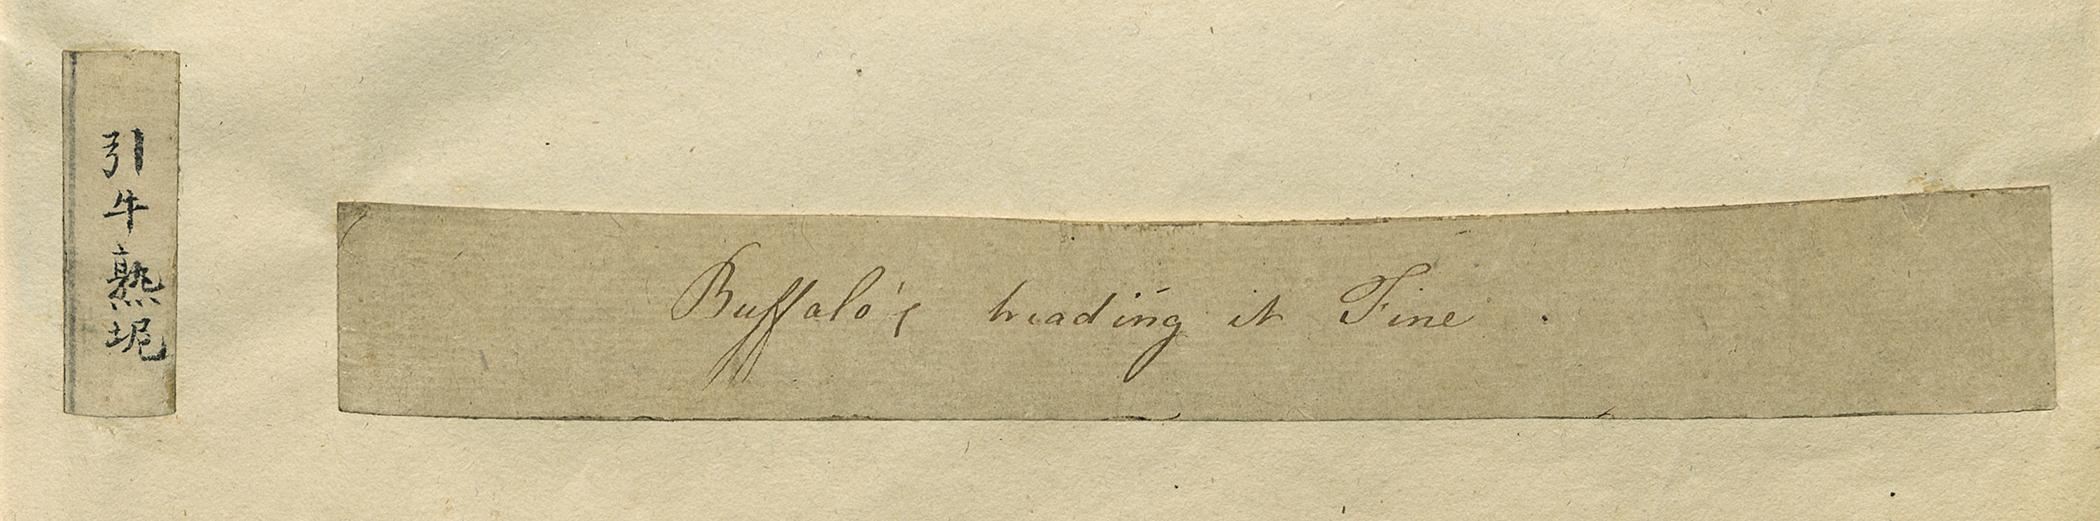 引牛熟坭
Buffalo's treading it Fine .